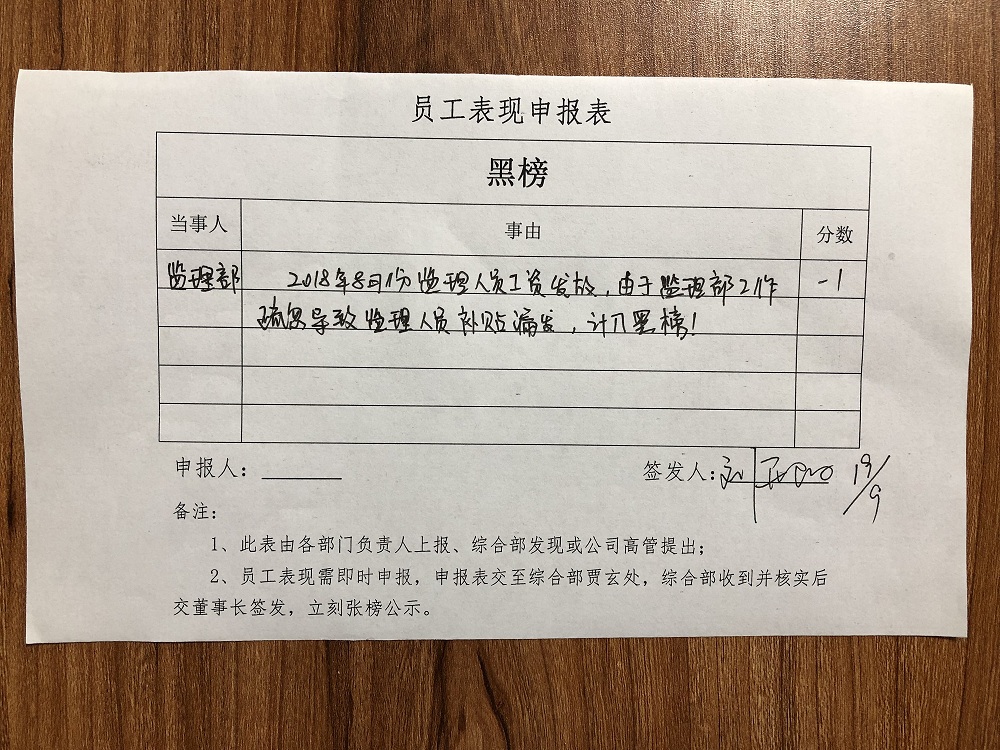 员工表现申报表
黑榜
当事人 事由 分数
监理部 2018年8月份监理人员工资发放,由于监理部工作 -1
疏忽导致监理人员补贴漏发,计入黑榜!
申报人: 签发人: 19/9
备注:
1、此表由各部门负责人上报、综合部发现或公司高管提出;
2、员工表现需即时申报,申报表交至综合部贾玄处,综合部收到并核实后
交董事长签发,立刻张榜公示。